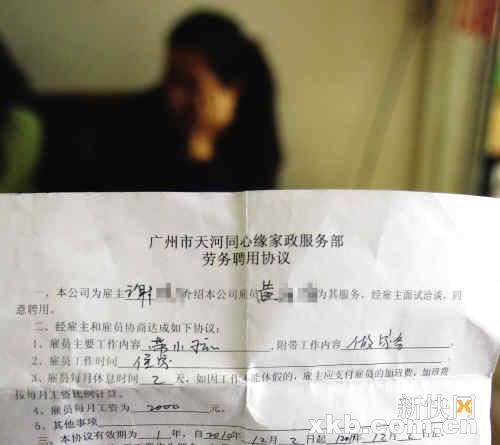 广州市天河同心缘家政服务部
劳务聘用协议
一、本公司为雇主谢 介绍本公司雇员黄 为其服务,经雇主面试洽谈,同
意聘用。
二、经雇主和雇员协商达成如下协议:
1、雇员主要工作内容带小孩,附带工作内容做家务
2、雇员工作时间住家
3、雇员每月休息时间2天,如因工作 能休假的,雇主应支付雇员的加班费,加班费
按每月工资比例计算。
4、雇员每月工资为2000元。
5、其他事项
本协议有效期为1年,自2010年12月2日起
新快
xkb.com.cn